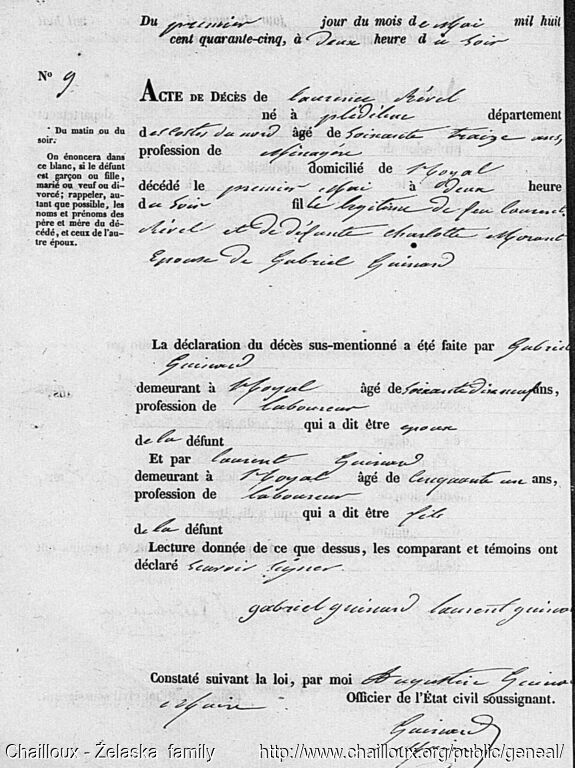 Du premier jour du mois de Mai mil huit
cent quarante-cinq, à deux heure du soir
N° 9
Du matin ou du
soir.
On énoncera dans
ce blanc, si le défunt
est garçon ou fille,
marié ou veuf ou di-
vorcé; rappeler, au-
tant que possible, les
noms et prénoms des
père et mère du dé-
cédé, et ceux de l'au-
tre époux.
ACTE DE DÉCÈS de laurence Révél
né à plédéliac département
des Costes du nord âgé de soixante traize ans,
profession de Ménagère
domicilié de Noyal
décédé le premier Mai à deux heure
du soir fille légitime de feu laurent
Révél et de défunte Charlotte Morant
Epouse de Gabriel Guinard
La déclaration du décès sus-mentionné a été faite par Gabriel
Guinard
demeurant à Noyal âgé de soixante dix neuf ans,
profession de laboureur
qui a dit être epoux
de la défunt
Et par laurent Guinard
demeurant à Noyal âgé de Cinquante un ans,
profession de laboureur
qui a dit être fils
de la défunt
Lecture donnée de ce que dessus, les comparant et témoins ont
déclaré scavoir signer.
gabriel guinard laurent guinard
Constaté suivant la loi, par moi Augustin Guinard
Maire Officier de l'État civil soussignant.
Guinard
Chailloux - Želaska family http://www.chailloux.org/public/geneal/